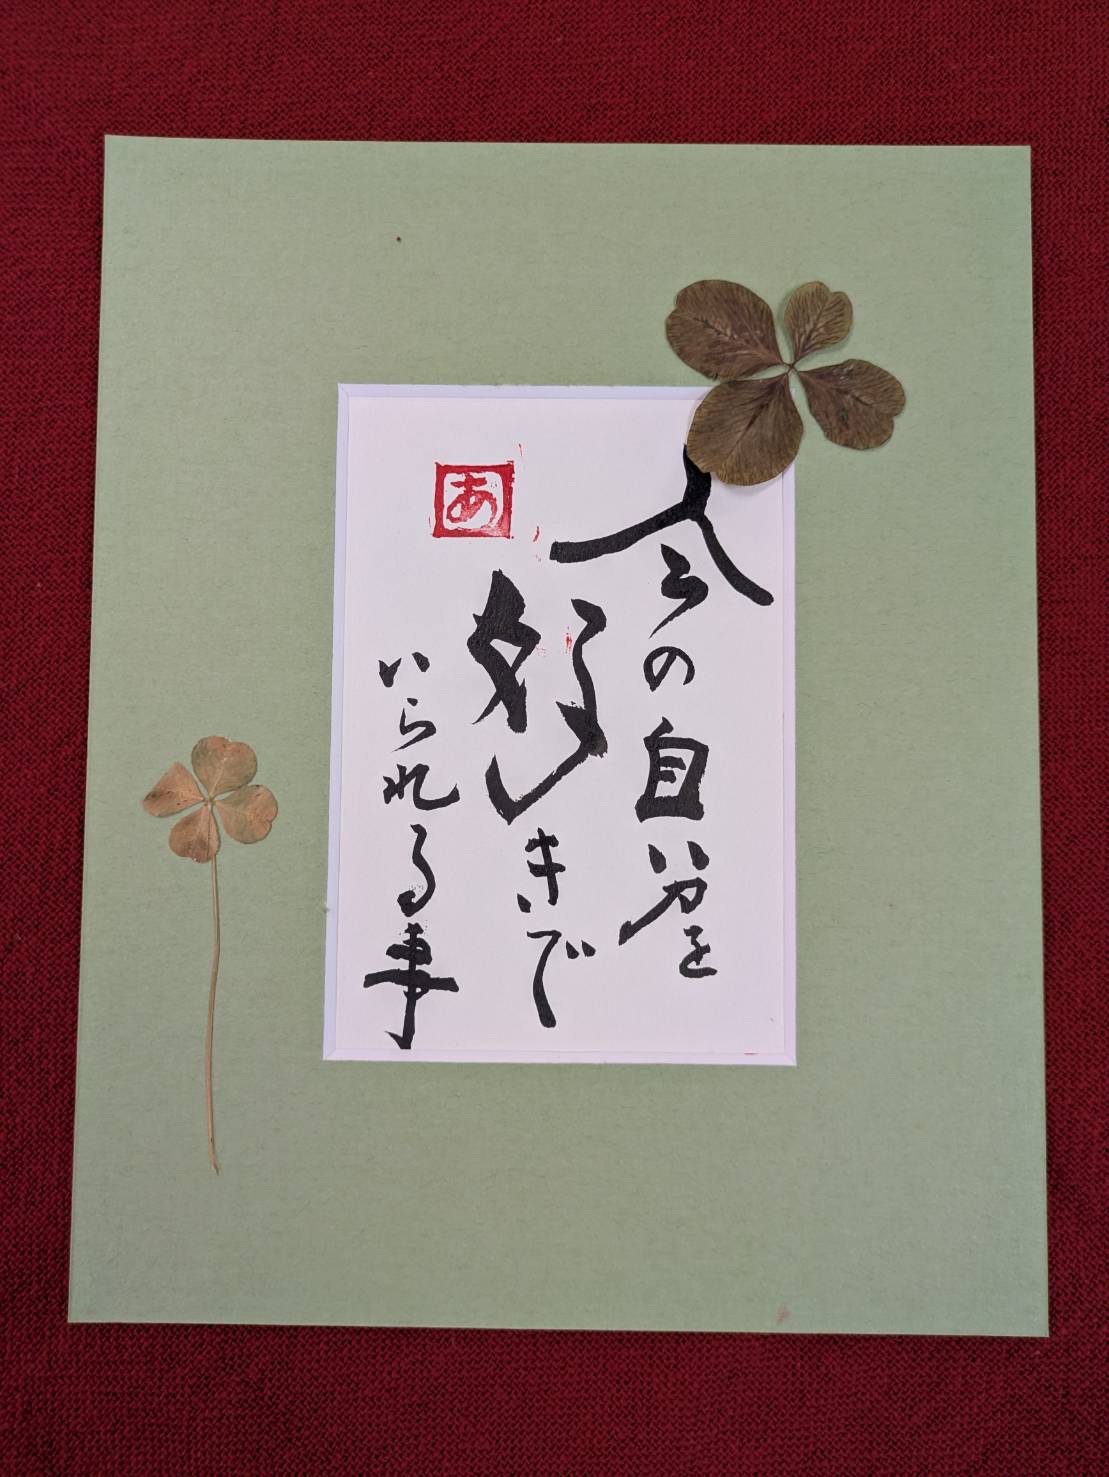 今の自分を
好きで
いられる事
あ